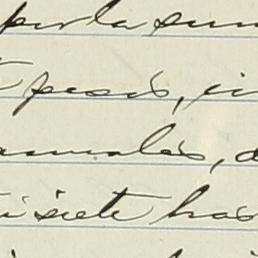 por la sum
pesos, in
anuales, d
i siete has